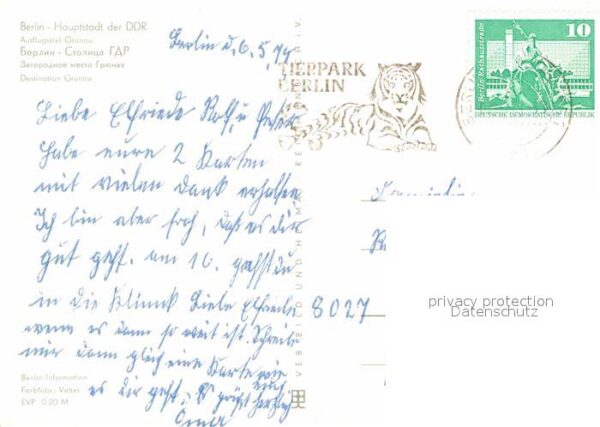 Berlin - Hauptstadt der DDR
Ausflugsziel Grünau
Берлин - Столица ГДР
Загородное место Грюнау
Destination Grünau
Berlin d. 6.5.79
TIERPARK
BERLIN
10
Berlin, Rathausstraße
DEUTSCHE DEMOKRATISCHE REPUBLIK
Liebe Elfriede Rolf u Peter
Habe eure 2 Karten
mit vielen Dank erhalten
Ich bin aber froh, daß es dir
gut geht. am 10. gehst du
in die Klinik Liebe Elfriede
wenn es dann so weit ist. Schreibe
mir dann gleich eine Karte wie
es dir geht. Es grüßt euch herzlich
Oma
8027
privacy protection
Datenschutz
VEB BILD UND HEIMAT
Berlin-Information
Farbfoto: Vetter
EVP 0,20 M